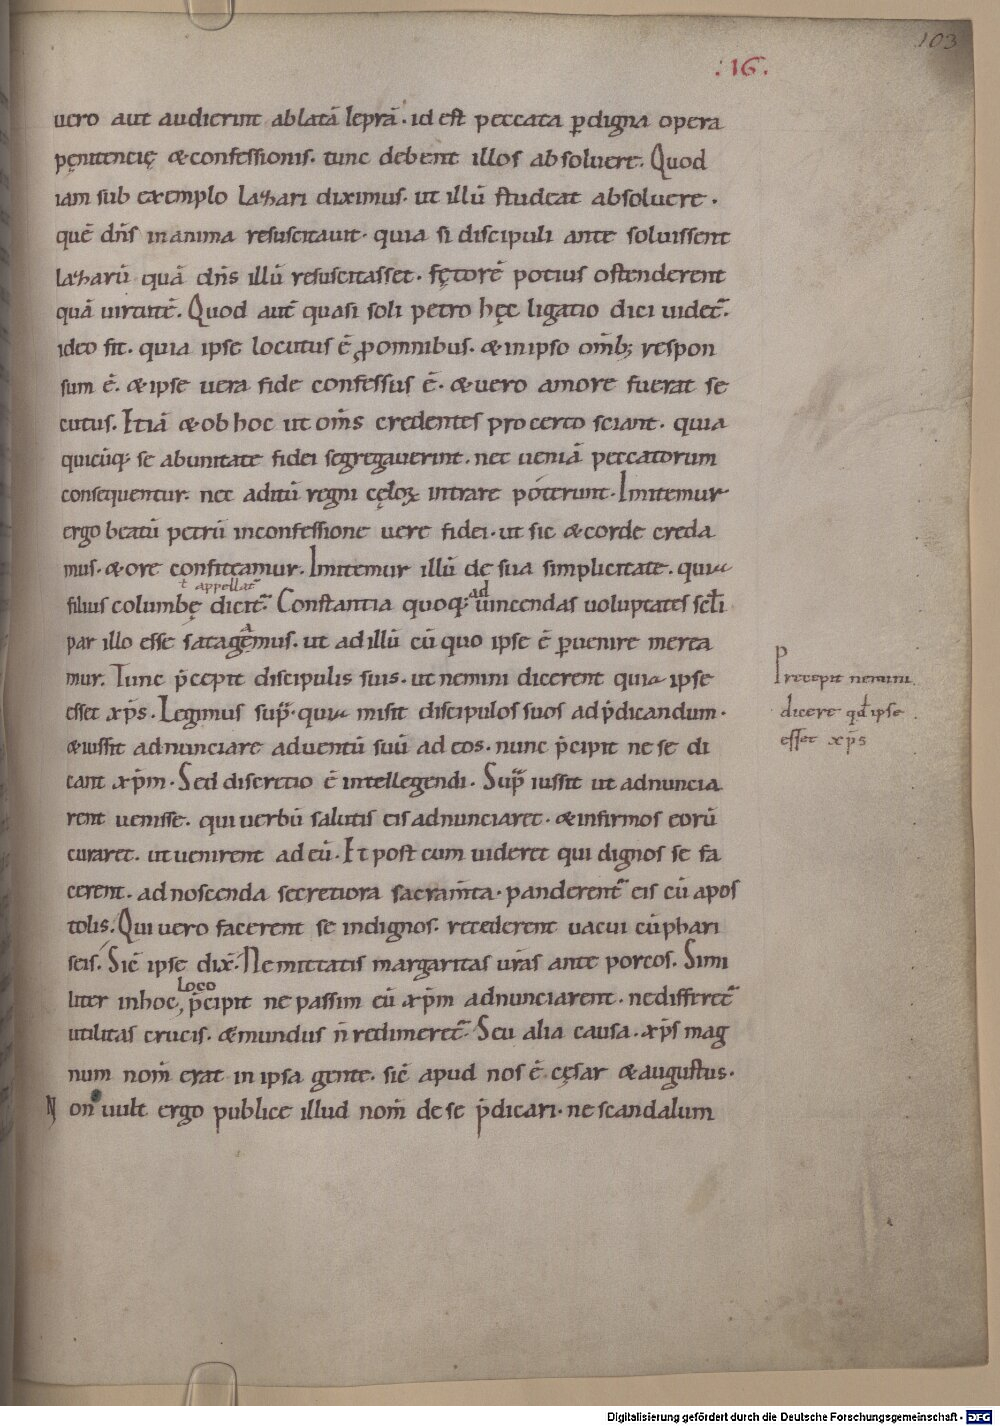 103
:16.
uero aut audierint ablatā leprā. id est peccata ꝑ digna opera
pęnitentię & confessionis. tunc debent illos absoluere. Quod
iam sub exemplo lazari diximus. ut illū studeat absoluere.
quē dn̄s in anima resuscitauit. quia si discipuli ante soluissent
lazarū quā dn̄s illū resuscitasset. fętorē potius ostenderent
quā uirtutē. Quod autē quasi soli petro hęc ligatio dici uidet᷑.
ideo fit. quia ipse locutus ē ꝓ omnibus. & in ipso om̄ibꝫ respon
sum ē. & ipse uera fide confessus ē. & uero amore fuerat se
cutus. Etiā & ob hoc ut om̄s credentes pro certo sciant. quia
quicūqꝫ se ab unitate fidei segregauerint. nec ueniā peccatorum
consequentur. nec aditū regni cęloꝝ intrare poterunt. Imitemur
ergo beatū petrū in confessione uere fidei. ut sic & corde creda
mus. & ore confiteamur. Imitemur illū de sua simplicitate. quia
ł appellat᷑
filius columbę dicit᷑. Constantia quoqꝫ ad uincendas uoluptates sc̄li
par illo esse satagamus. ut ad illū cū quo ipse ē ꝑuenire merea
mur. Tunc p̄cepit discipulis suis. ut nemini dicerent quia ipse
esset xp̄s. Legimus sup̄. quia misit discipulos suos ad p̄dicandum.
& iussit adnunciare aduentū suū ad eos. nunc p̄cipit ne se di
cant xp̄m. Sed discretio ē intellegendi. Sup̄ iussit ut adnuncia
rent uenisse. qui uerbū salutis eis adnunciaret. & infirmos eorū
curaret. ut uenirent ad eū. Et post cum uideret qui dignos se fa
cerent. ad noscenda secretiora sacram̄ta. panderent᷑ eis cū apos
tolis. Qui uero facerent se indignos. recederent uacui cū phari
seis. Sic̄ ipse dix̄. Ne mittatis margaritas ur̄as ante porcos. Simi
liter in hoc loco p̄cipit ne passim eū xp̄m adnunciarent. ne differet᷑
utilitas crucis. & mundus n̄ redimeret᷑. Seu alia causa. xp̄s mag
num nom̄ erat in ipsa gente. sic̄ apud nos ē cęsar & augustus.
Non uult ergo publice illud nom̄ de se p̄dicari. ne scandalum
Precepit nemini
dicere qd̄ ipse
esset xp̄s
Digitalisierung gefördert durch die Deutsche Forschungsgemeinschaft - DFG